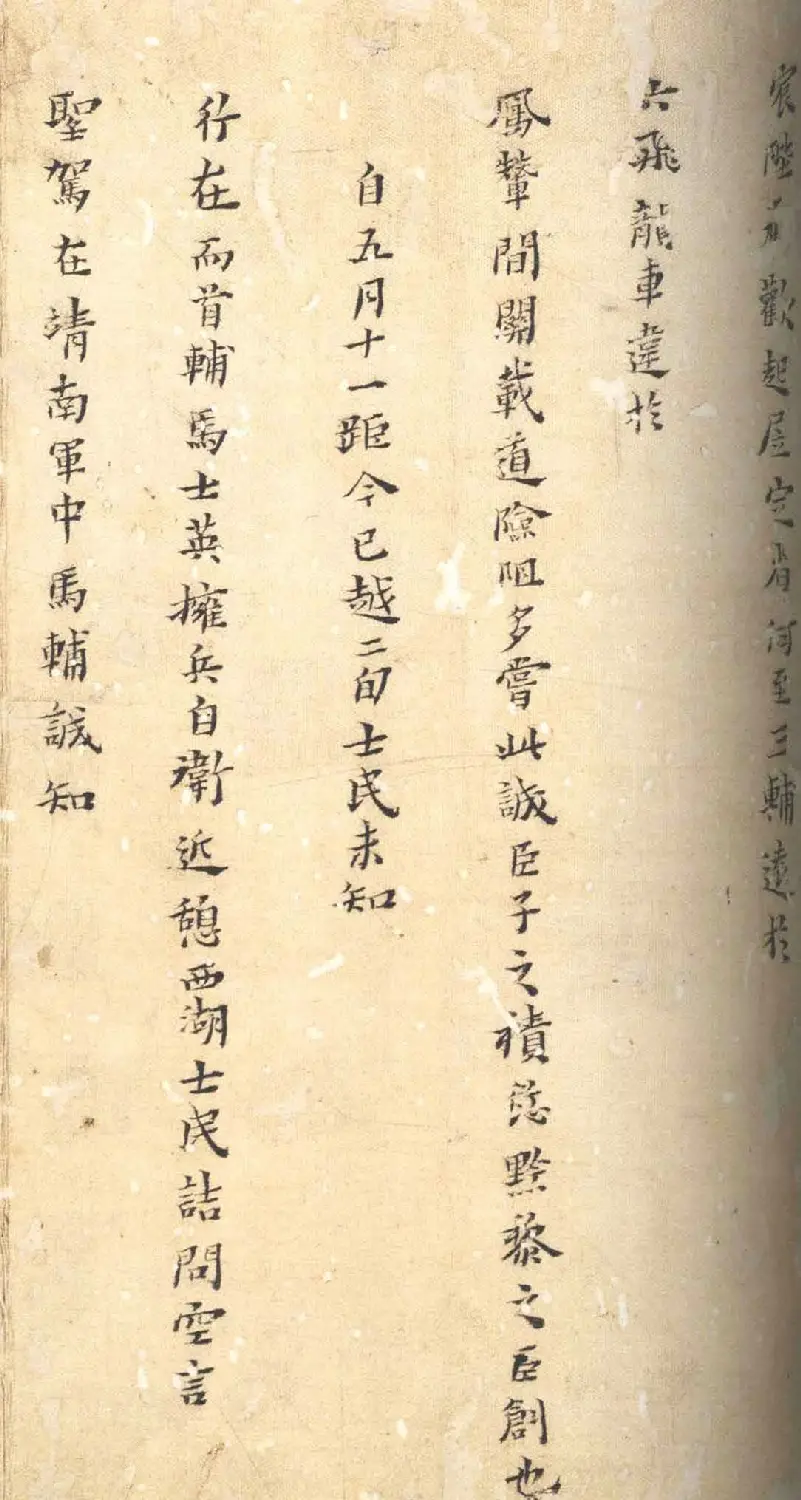 宸陛若歡起居定省何至三輔遠於
六飛龍車違於
鳳輦間關載道險阻多嘗此誠臣子之積愆黔黎之巨創也
自五月十一距今已越二旬士民未知
行在而首輔馬士英擁兵自衛近憩西湖士民詰問云言
聖駕在靖南軍中馬輔誠知